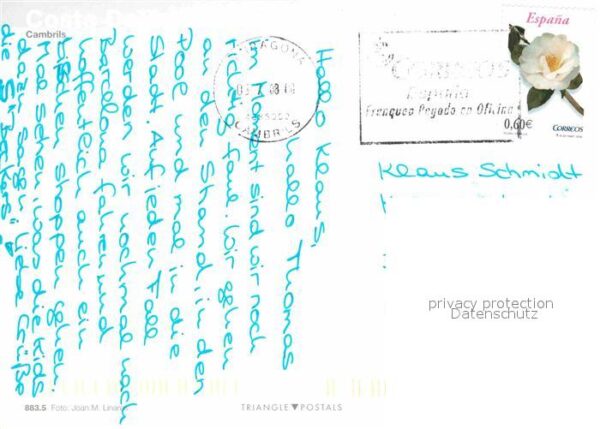 Costa
Cambrils
Hallo Klaus,
hallo Thomas
im Moment sind wir noch
richtig faul. Wir gehen
an den Strand, in den
Pool und mal in die
Stadt. Auf jeden Fall
werden wir nochmal nach
Barcelona fahren und
hoffentlich auch ein
bißchen shoppen gehen.
Mal sehen, was die Kids
dazu sagen. Liebe Grüße
die
TARRAGONA
08
CAMBRILS
CORREOS
España
Franqueo Pagado en Oficina
España
0,60€
CORREOS
Klaus Schmidt
privacy protection
Datenschutz
883.5 Foto: Joan M. Linares
TRIANGLE▼POSTALS